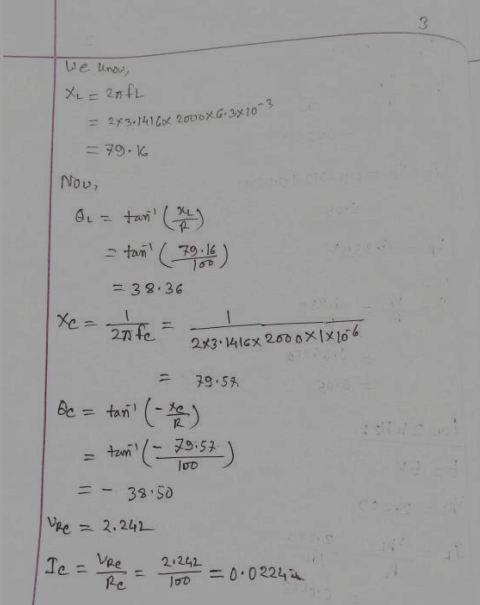 3
We know,
XL = 2πfL
= 2×3.1416×2000×6.3×10⁻³
= 79.16
Now,
θL = tan⁻¹ (XL/R)
= tan⁻¹ (79.16/100)
= 38.36
XC = 1/2πfC = 1/2×3.1416×2000×1×10⁻⁶
= 79.57
θC = tan⁻¹ (-XC/R)
= tan⁻¹ (-79.57/100)
= - 38.50
VRC = 2.242
IC = VRC/RC = 2.242/100 = 0.0224